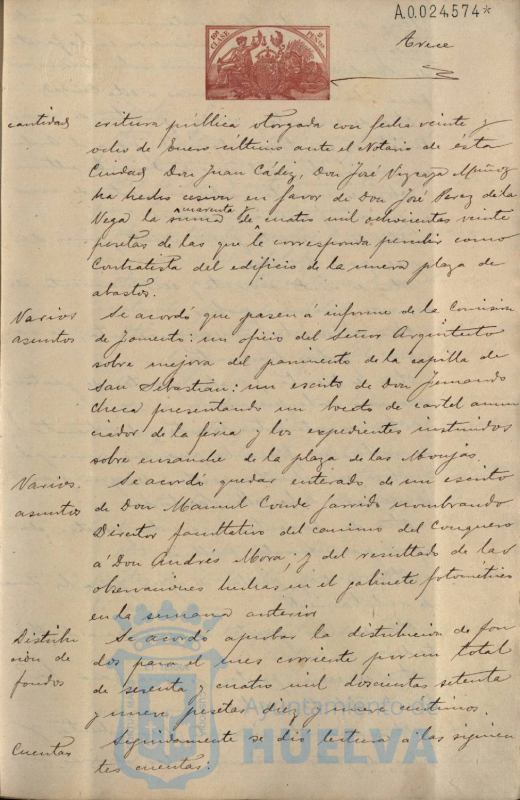 A.0.024,574*
10ª CLASE
2 PESETAS
Trece
cantidad
critura pública otorgada con fecha veinte y
ocho de Enero último ante el Notario de esta
Ciudad Don Juan Cádiz, Don José Vizcaya Muñoz
ha hecho cesion en favor de Don José Perez de la
Vega la suma de cuarenta cuatro mil ochocientas veinte
pesetas de las que le corresponda percibir como
Contratista del edificio de la nueva plaza de
abastos.
Varios asuntos
Se acordó que pasen á informe de la Comision
de Fomento: un oficio del Señor Arquitecto
sobre mejora del pavimento de la capilla de
San Sebastian: un escrito de Don Fernando
Checa presentando un boceto de cartel anun
ciador de la feria y los expedientes instruidos
sobre ensanche de la plaza de las Monjas.
Varios asuntos
Se acordó quedar enterado de un escrito
de Don Manuel Conde Garrido nombrando
Director facultativo del camino del Conquero
á Don Andrés Mora; y del resultado de las
observaciones hechas en el gabinete fotométrico
en la semana anterior
Distribu
cion de
fondos
Se acordó aprobar la distribucion de fon
dos para el mes corriente por un total
de sesenta y cuatro mil doscientas setenta
y nueve pesetas diez y nueve céntimos.
Cuentas
Seguidamente se dió lectura a las siguien
tes cuentas:
Ayuntamiento de
HUELVA